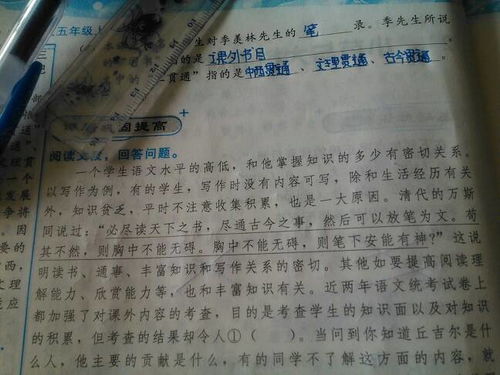 五年级上
生对季羡林先生的 笔 录。季先生所说
的是 课外书目 。
贯通”指的是 中西贯通 、 文理贯通 、 古今贯通 。
巩固提高
阅读文段，回答问题。
一个学生语文水平的高低，和他掌握知识的多少有密切关系。
以写作为例，有的学生，写作时没有内容可写，除和生活经历有关
外，知识贫乏，平时不注意收集积累，也是一大原因。清代的万斯
同说过：“必尽读天下之书，尽通古今之事，然后可以放笔为文。苟
其不然，则胸中不能无碍。胸中不能无碍，则笔下安能有神?”这说
明读书、通事、丰富知识和写作关系的密切。其他如要提高阅读理
解能力、欣赏能力等，也和丰富知识有关。近两年语文统考试卷上
都加强了对课外内容的考查，目的是考查学生的知识面以及对知识
的积累，但考查的结果却令人①（ ）。当问到你知道丘吉尔是什
么人，他主要的贡献是什么，有的同学不了解这方面的内容，就